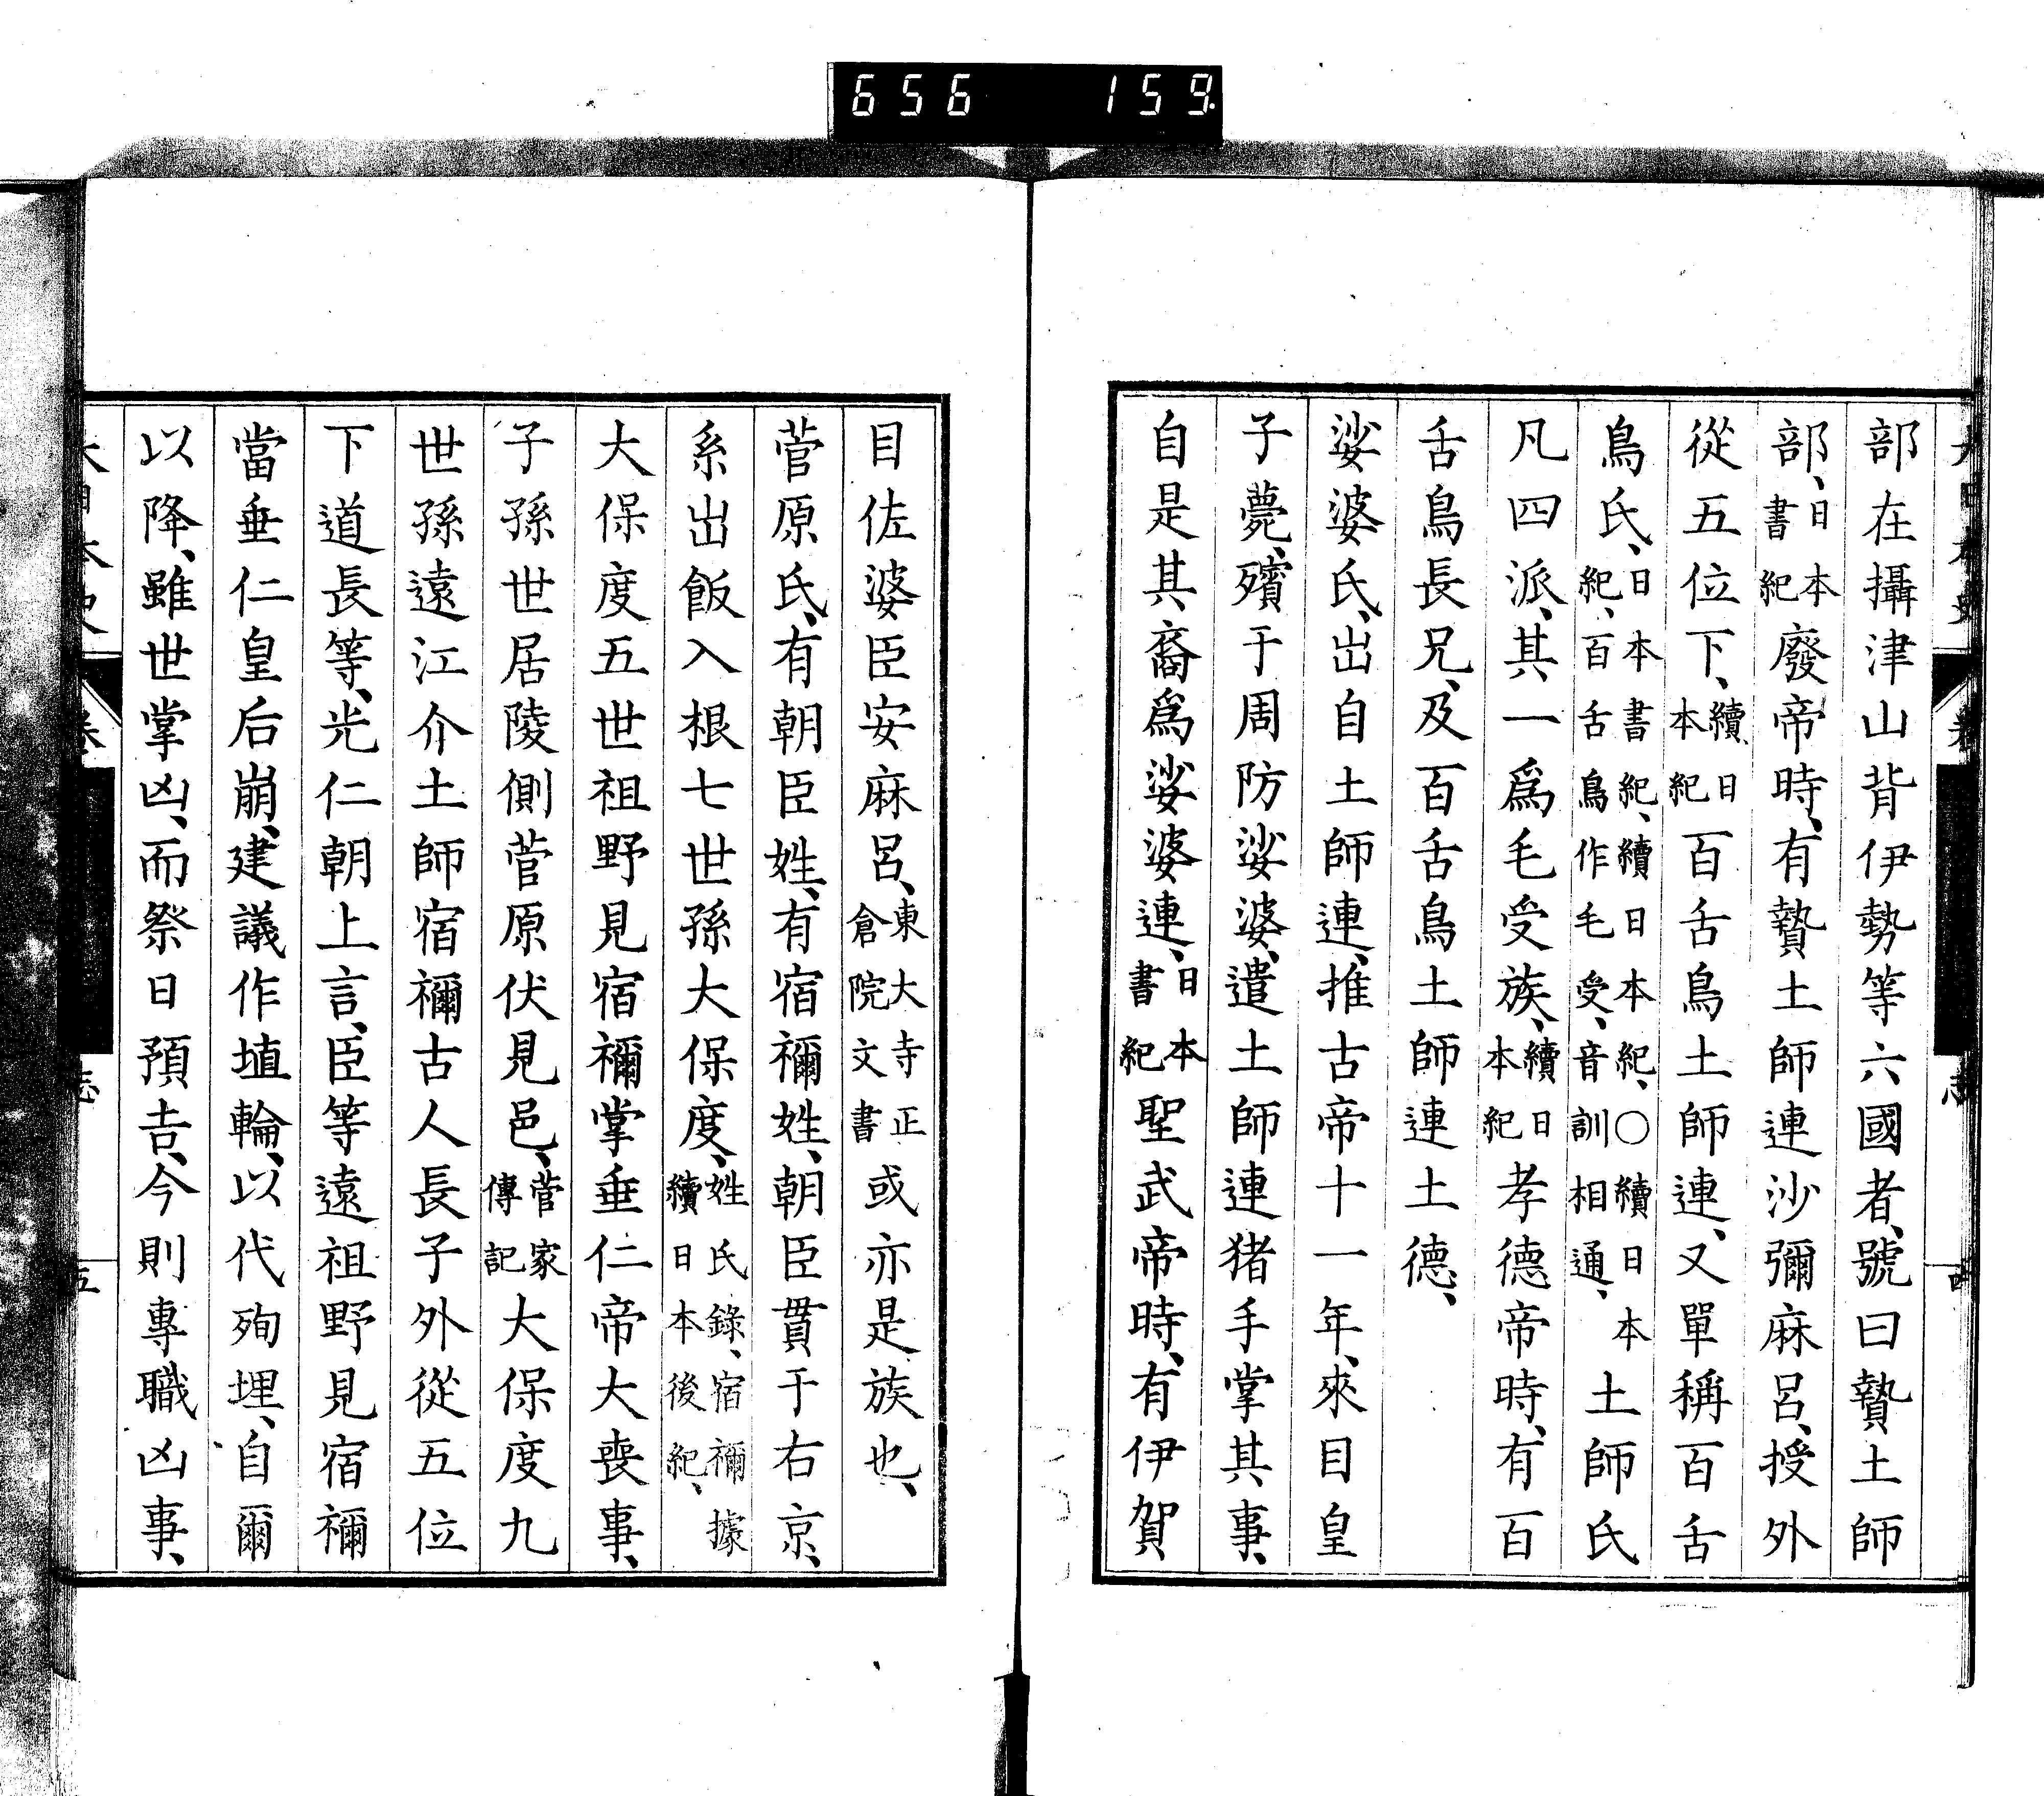 656 159
部在攝津山背伊勢等六國者、號曰贄土師
部、日本書紀廢帝時、有贄土師連沙彌麻呂、授外
從五位下、續日本紀百舌鳥土師連、又單稱百舌
鳥氏、日本書紀、續日本紀、〇續日本紀、百舌鳥作毛受、音訓相通、土師氏
凡四派、其一爲毛受族、續日本紀孝德帝時、有百
舌鳥長兄、及百舌鳥土師連土德、
娑婆氏、出自土師連、推古帝十一年、來目皇
子薨、殯于周防娑婆、遣土師連猪手掌其事、
自是其裔爲娑婆連、日本書紀聖武帝時、有伊賀
目佐婆臣安麻呂、東大寺正倉院文書或亦是族也、
菅原氏、有朝臣姓、有宿禰姓、朝臣貫于右京、
系出飯入根七世孫大保度、姓氏錄、宿禰據續日本後紀、
大保度五世祖野見宿禰掌垂仁帝大喪事、
子孫世居陵側菅原伏見邑、菅家傳記大保度九
世孫遠江介土師宿禰古人長子外從五位
下道長等、光仁朝上言、臣等遠祖野見宿禰
當垂仁皇后崩、建議作埴輪、以代殉埋、自爾
以降、雖世掌凶、而祭日預吉、今則專職凶事、